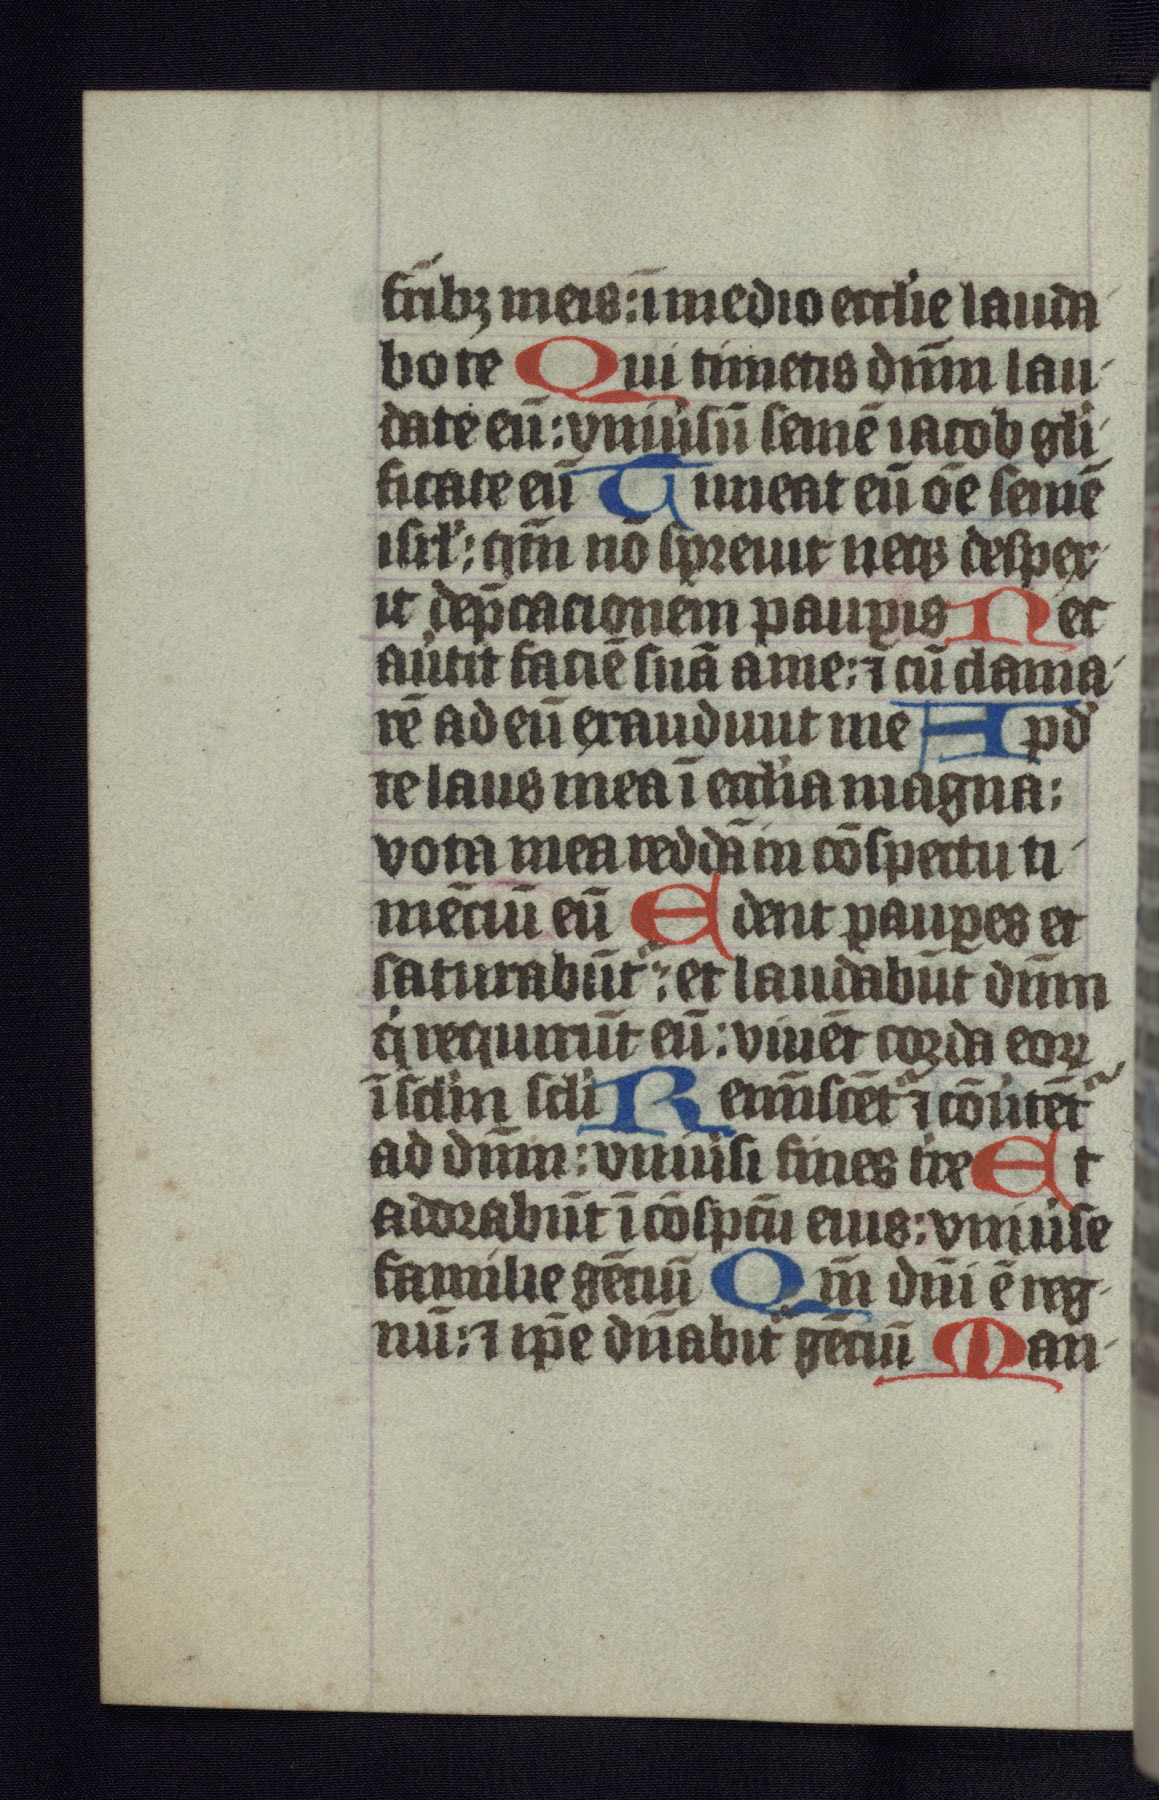 fr̄ibꝫ meis : ī medio eccl̓ie lauda-
bo te Qui timetis dn̄m lau-
date eū : vniu̓sū semē iacob gl̓i-
ficate eū Timeat eū om̄e semē
isrl̓ : qm̄ nō spreuit neqꝫ despex-
it dep̄cacionem pauꝑis Nec
au̓tit faciē suā a me : ⁊ cū clama-
rē ad eū exaudiuit me Apd̓
te laus mea ī eccl̓ia magna :
vota mea reddā in cōspectu ti-
mēciū eū Edent pauꝑes et
saturabūt᷑ : et laudabūt dn̄m
q̓ requirūt eū : viuēt corda eoꝝ
ī scl̓m scl̓i Remīscēt᷑ ⁊ cōu̓tēt᷑
ad dn̄m : vniu̓si fines tr̓e Et
adorabūt ī cōspc̄tu eius : vniu̓se
familie gēciū Qm̄ dn̄i ē reg-
nū : ⁊ ip̄e dn̄abit᷑ gēciū Man-